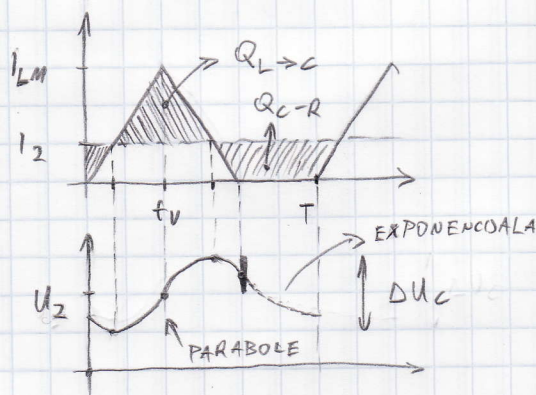 I_LM
Q_L→C
Q_C-R
I_2
t_V
T
EXPONENCIJALA
U_2
ΔU_C
PARABOLE